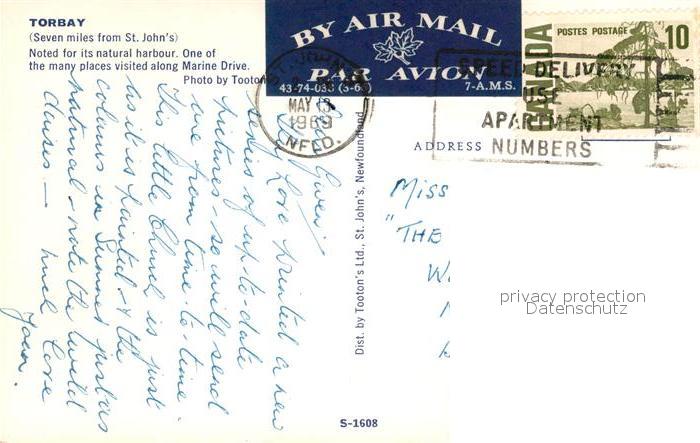 TORBAY
(Seven miles from St. John's)
Noted for its natural harbour. One of
the many places visited along Marine Drive.
Photo by Tooton
BY AIR MAIL
PAR AVION
43-74-038 (3-68)
7-A.M.S.
ST. JOHN'S
MAY 13
1969
NFLD.
POSTES POSTAGE
10
SPEED DELIVERY
USE
APARTMENT
NUMBERS
ADDRESS
MISS
"THE
Dist. by Tooton's Ltd., St. John's, Newfoundland
Gwen
They have printed a new
series of up-to-date
pictures - so will send
one from time to time.
This little Church is just
as it is painted & the
columns in
natural - note the
daisies - much love
Joan.
S-1608
privacy protection
Datenschutz